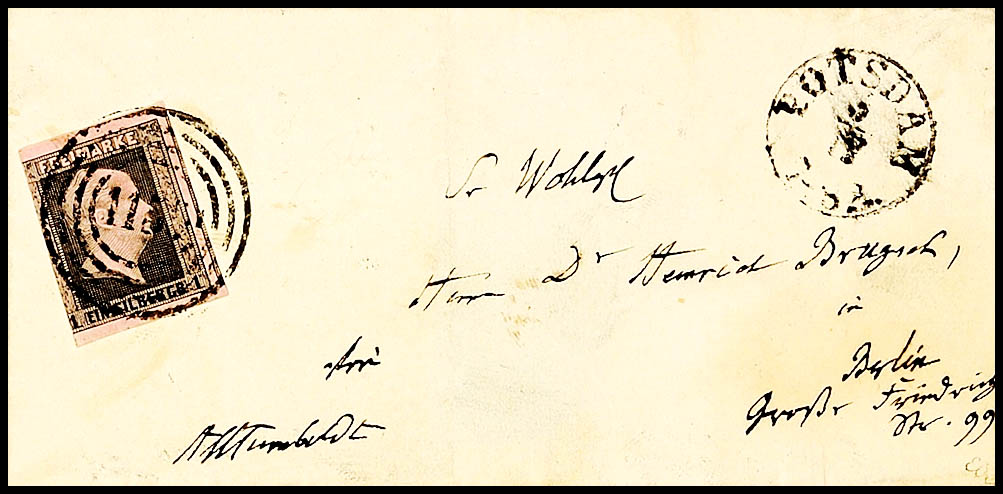 POTSDAM
FREIMARKE
Sr Wohlgb
Herrn Dr Heinrich Brugsch,
in
frei
Berlin
Große Friedrich
Str. 99
AvHumboldt
1. EIN SILBERGR. 1